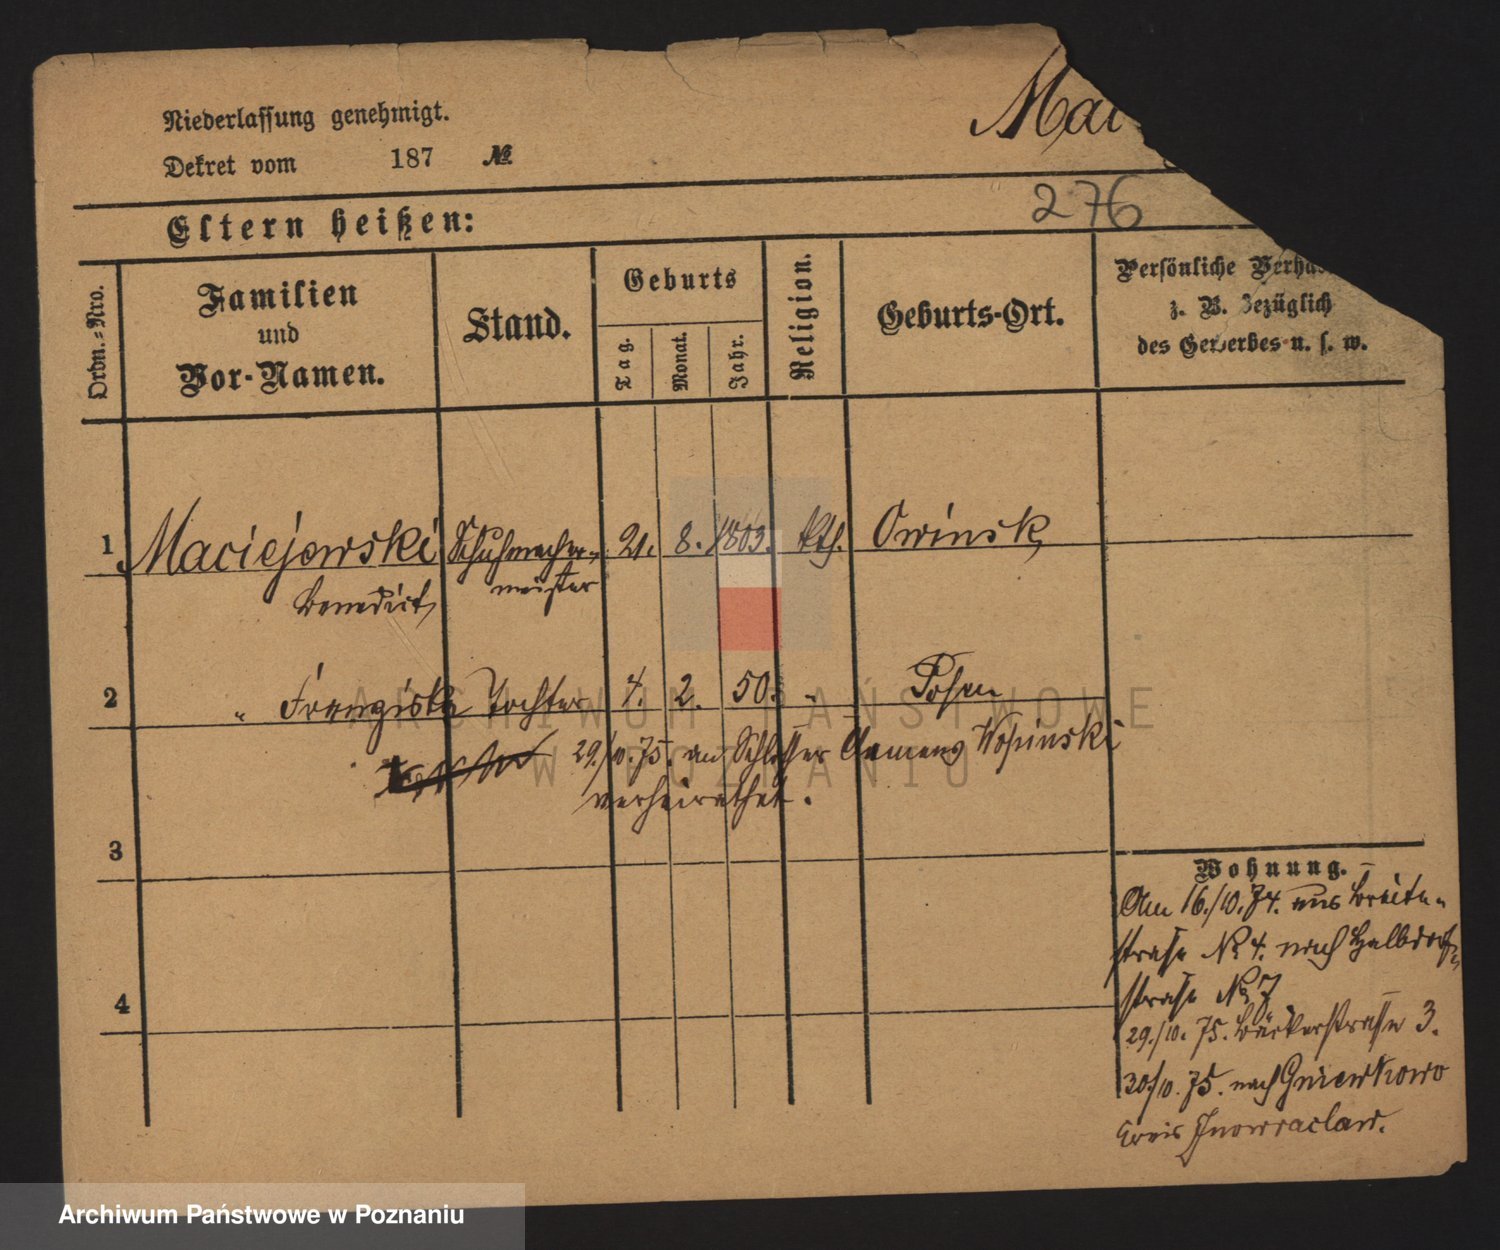 Niederlassung genehmigt.
Mac
Dekret vom 187 №
276
Eltern heißen:
Ordn.-Nro.
Familien
und
Vor-Namen.
Stand.
Geburts
Tag.
Monat.
Jahr.
Religion.
Geburts-Ort.
Persönliche
z. B. bezüglich
des Gewerbes u. s. w.
1 Maciejewski Schuhmacher- 21. 8. 1803. kth. Owinsk
Benedict meister
2 " Franziska Tochter 4. 2. 50. " Posen
29./10.75. an Schlosser Clemens Wosinski
verheirathet.
3
4
Wohnung.
Am 16./10.74. aus Breite-
straße № 4. nach Halbdorf-
straße № 7
29./10. 75. Bäckerstraße 3.
30/10.75. nach Gniewkowo
Kreis Inowraclaw.
ARCHIWUM PAŃSTWOWE
W POZNANIU
Archiwum Państwowe w Poznaniu